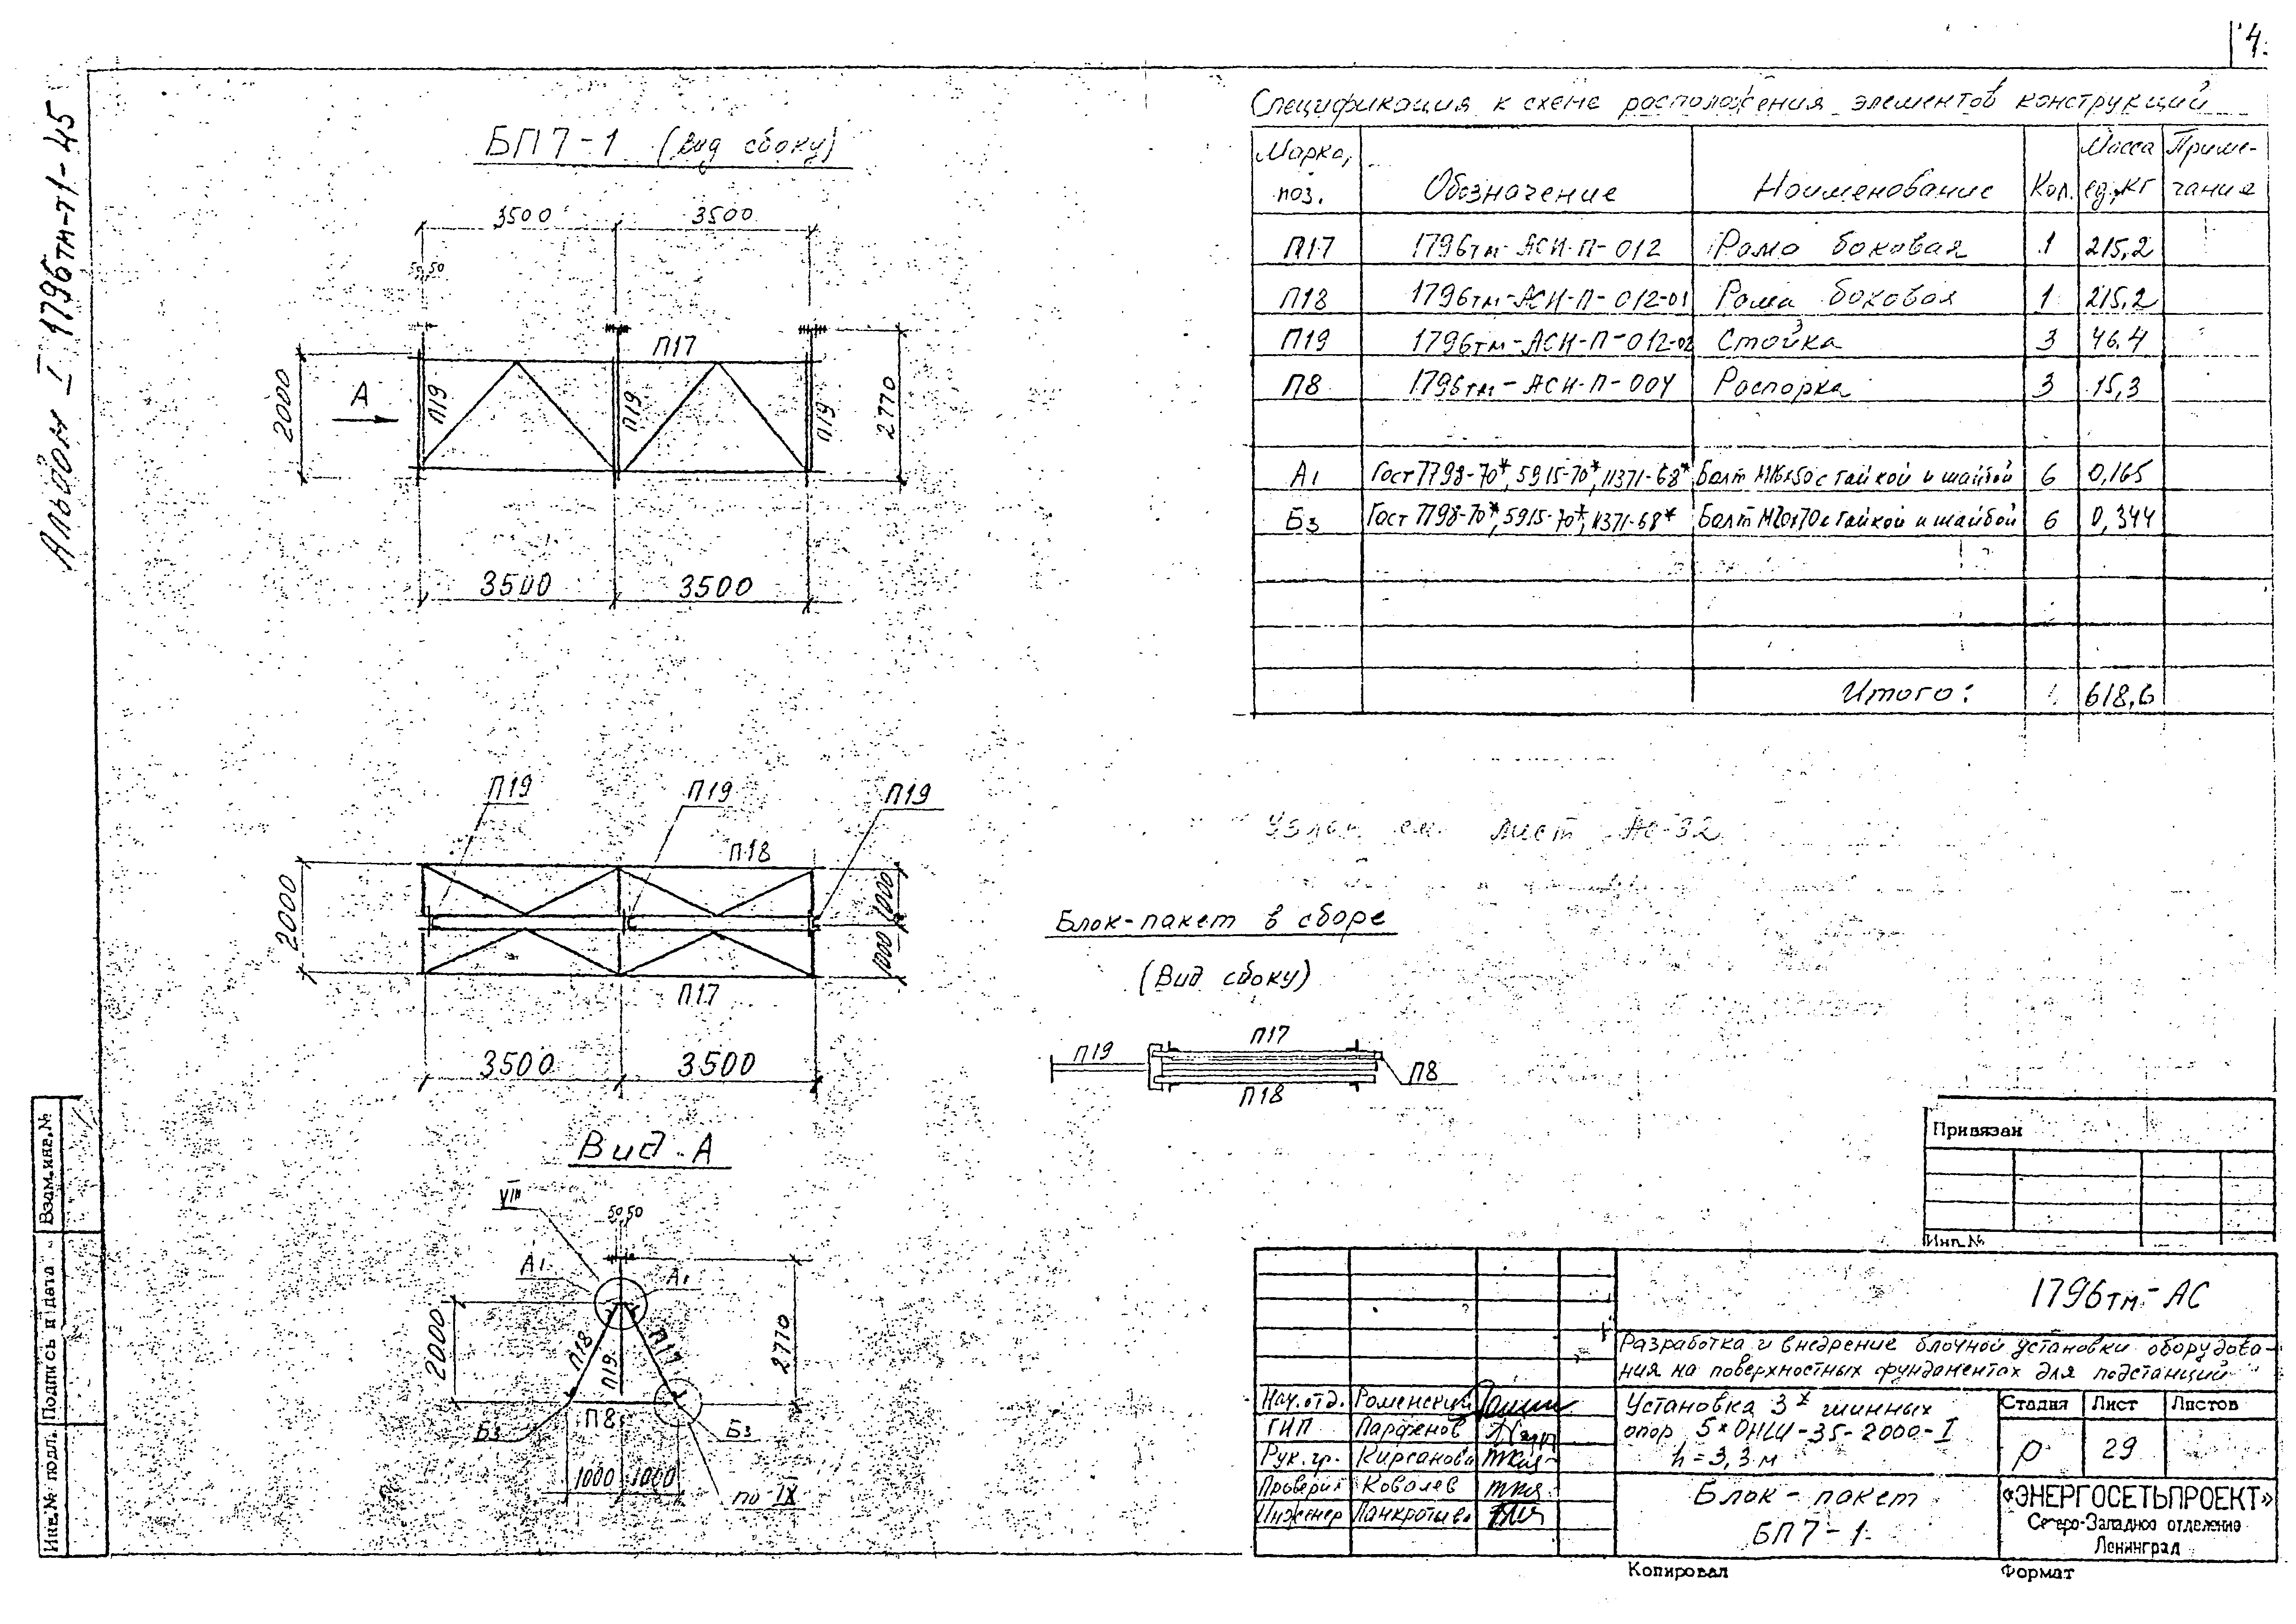 4
Альбом I 1796тм-т1-45
БП7-1 (вид сбоку)
3500 3500
50 50
П17
А
П19 П19 П19
2000
2770
3500 3500
Спецификация к схеме расположения элементов конструкций
Марка, поз. Обозначение Наименование Кол. Масса ед, кг Примечание
П17 1796тм-АСИ-П-012 Рама боковая 1 215,2
П18 1796тм-АСИ-П-012-01 Рама боковая 1 215,2
П19 1796тм-АСИ-П-012-02 Стойка 3 46.4
П8 1796тм-АСИ-П-004 Распорка 3 15,3
А1 Гост 7798-70*, 5915-70*, 11371-68* Болт М16х50 с гайкой и шайбой 6 0,165
Б3 Гост 7798-70*, 5915-70*, 11371-68* Болт М20х70 с гайкой и шайбой 6 0,344
Итого: 618,6
П19 П19 П19
П18
2000
1000 1000
П17
3500 3500
Узлы см. лист АС-32
Блок-пакет в сборе
(Вид сбоку)
П19 П17 П8
П18
Вид А
VIII
50 50
А1 А1
2000
П18 П19 П17
2770
Б3 П8 Б3
1000 1000
по IX
Привязан
Инв.№
1796тм-АС
Разработка и внедрение блочной установки оборудова-
ния на поверхностных фундаментах для подстанций
Нач.отд. Роменский
ГИП Парфенов
Рук. гр. Кирсанова
Проверил Ковалев
Инженер Панкратьева
Установка 3х шинных
опор 5×ОНШ-35-2000-I
h=3,3 м
Стадия Лист Листов
Р 29
Блок-пакет
БП7-1
«ЭНЕРГОСЕТЬПРОЕКТ»
Северо-Западное отделение
Ленинград
Копировал Формат
Взам.инв.№
Подпись и дата
Инв.№ подл.